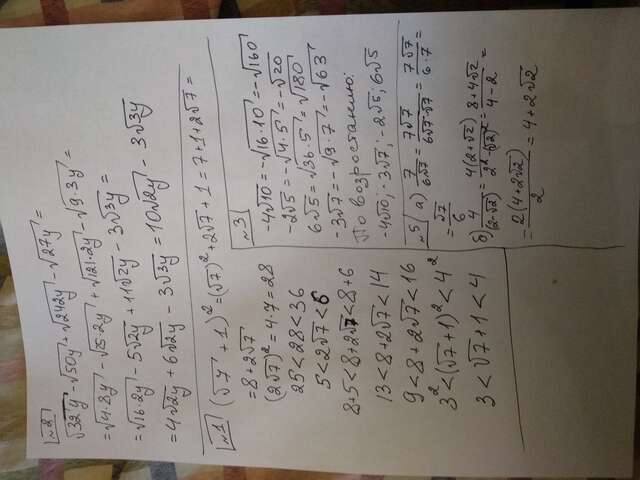 №2
√32y - √50y + √242y - √27y =
= √4·8y - √25·2y + √121·2y - √9·3y =
= √16·2y - 5√2y + 11√2y - 3√3y =
= 4√2y + 6√2y - 3√3y = 10√2y - 3√3y
№1 (√7 + 1)² = (√7)² + 2√7 + 1 = 7 + 1 + 2√7 =
= 8 + 2√7
(2√7)² = 4·7 = 28
25 < 28 < 36
5 < 2√7 < 6
8+5 < 8+2√7 < 8+6
13 < 8+2√7 < 14
9 < 8+2√7 < 16
3² < (√7+1)² < 4²
3 < √7+1 < 4
№3
-4√10 = -√16·10 = -√160
-2√5 = -√4·5 = -√20
6√5 = √36·5 = √180
-3√7 = -√9·7 = -√63
По возростанию:
-4√10; -3√7; -2√5; 6√5
№5 а) 7/6√7 = 7√7/6√7·√7 = 7√7/6·7 =
= √7/6
б) 4/(2-√2) = 4(2+√2)/2²-(√2)² = 8+4√2/4-2 =
= 2(4+2√2)/2 = 4+2√2